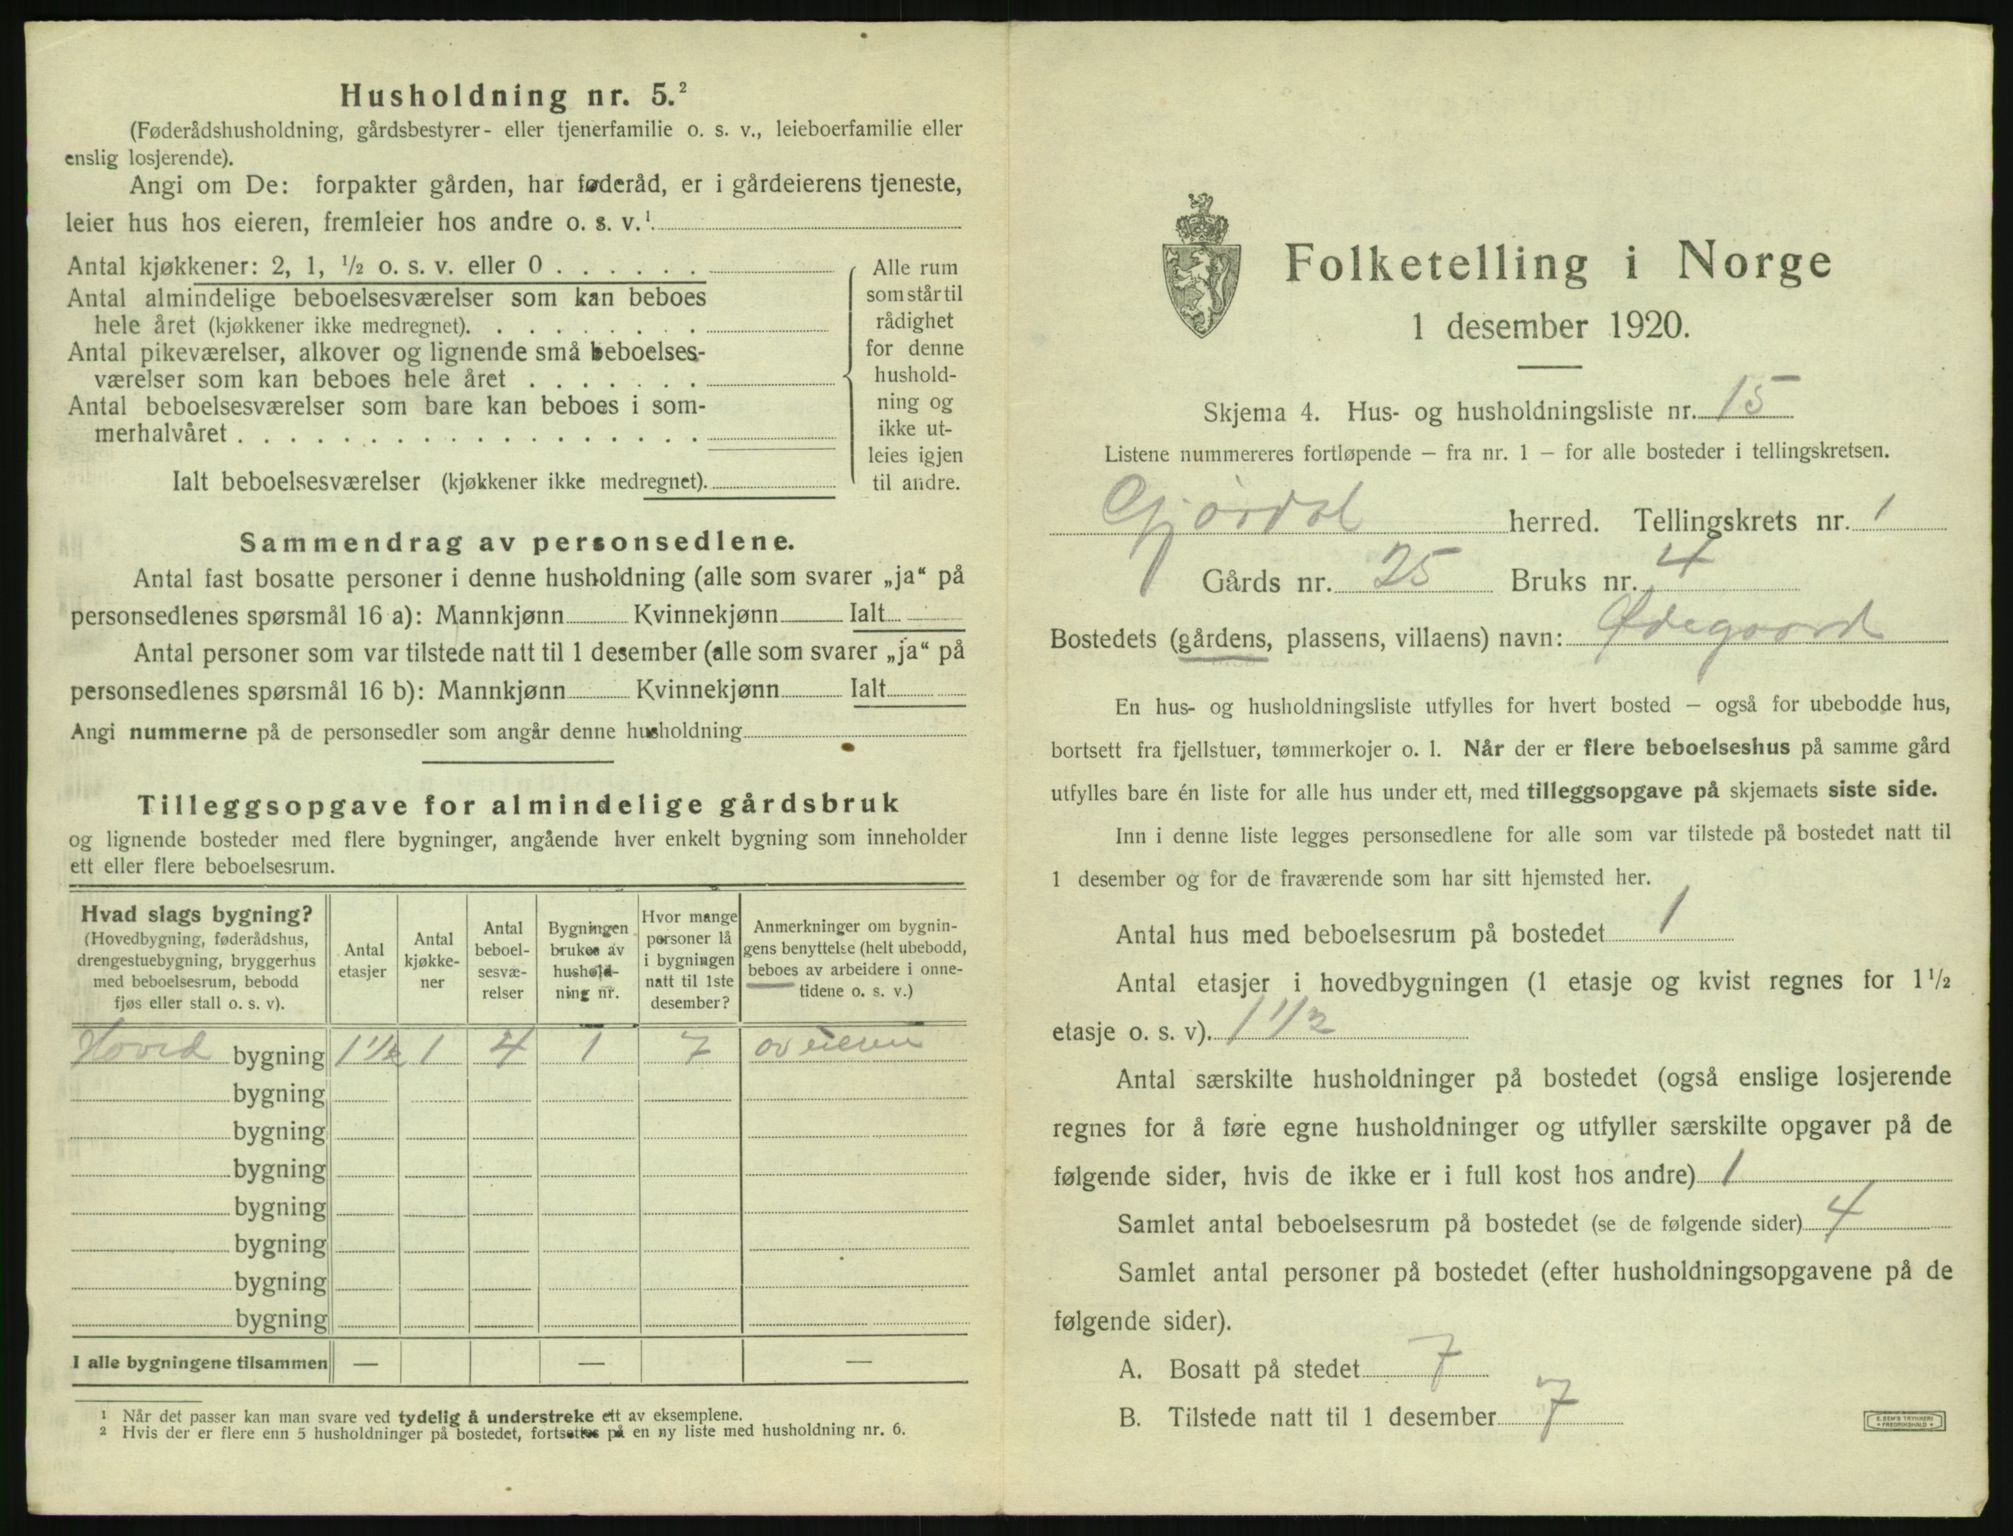 Husholdning nr. 5.²
(Føderådshusholdning, gårdsbestyrer- eller tjenerfamilie o. s. v., leieboerfamilie eller
enslig losjerende).
Angi om De: forpakter gården, har føderåd, er i gårdeierens tjeneste,
leier hus hos eieren, fremleier hos andre o. s. v.¹
Antal kjøkkener: 2, 1, ½ o. s. v. eller 0
Antal almindelige beboelsesværelser som kan beboes
hele året (kjøkkener ikke medregnet).
Antal pikeværelser, alkover og lignende små beboelses-
værelser som kan beboes hele året
Antal beboelsesværelser som bare kan beboes i som-
merhalvåret
Ialt beboelsesværelser (kjøkkener ikke medregnet).
Alle rum
som står til
rådighet
for denne
hushold-
ning og
ikke ut-
leies igjen
til andre.
Sammendrag av personsedlene.
Antal fast bosatte personer i denne husholdning (alle som svarer „ja“ på
personsedlenes spørsmål 16 a): Mannkjønn Kvinnekjønn Ialt
Antal personer som var tilstede natt til 1 desember (alle som svarer „ja“ på
personsedlenes spørsmål 16 b): Mannkjønn Kvinnekjønn Ialt
Angi nummerne på de personsedler som angår denne husholdning
Tilleggsopgave for almindelige gårdsbruk
og lignende bosteder med flere bygninger, angående hver enkelt bygning som inneholder
ett eller flere beboelsesrum.
Hvad slags bygning?
(Hovedbygning, føderådshus,
drengestuebygning, bryggerhus
med beboelsesrum, bebodd
fjøs eller stall o. s. v).
Antal
etasjer
Antal
kjøkke-
ner
Antal
beboel-
sesvæ-
relser
Bygningen
brukes av
hushold-
ning nr.
Hvor mange
personer lå
i bygningen
natt til 1ste
desember?
Anmerkninger om bygnin-
gens benyttelse (helt ubebodd,
beboes av arbeidere i onne-
tidene o. s. v.)
Hoved bygning 1½ 1 4 1 7 av eieren
bygning
bygning
bygning
bygning
bygning
bygning
bygning
I alle bygningene tilsammen — — —
¹ Når det passer kan man svare ved tydelig å understreke ett av eksemplene.
² Hvis der er flere enn 5 husholdninger på bostedet, fortsettes på en ny liste med husholdning nr. 6.
Folketelling i Norge
1 desember 1920.
Skjema 4. Hus- og husholdningsliste nr. 15
Listene nummereres fortløpende – fra nr. 1 – for alle bosteder i tellingskretsen.
herred. Tellingskrets nr. 1
Gårds nr. 25 Bruks nr. 4
Bostedets (gårdens, plassens, villaens) navn: Ødegaard
En hus- og husholdningsliste utfylles for hvert bosted – også for ubebodde hus,
bortsett fra fjellstuer, tømmerkojer o. l. Når der er flere beboelseshus på samme gård
utfylles bare én liste for alle hus under ett, med tilleggsopgave på skjemaets siste side.
Inn i denne liste legges personsedlene for alle som var tilstede på bostedet natt til
1 desember og for de fraværende som har sitt hjemsted her.
Antal hus med beboelsesrum på bostedet 1
Antal etasjer i hovedbygningen (1 etasje og kvist regnes for 1½
etasje o. s. v). 1½
Antal særskilte husholdninger på bostedet (også enslige losjerende
regnes for å føre egne husholdninger og utfyller særskilte opgaver på de
følgende sider, hvis de ikke er i full kost hos andre) 1
Samlet antal beboelsesrum på bostedet (se de følgende sider) 4
Samlet antal personer på bostedet (efter husholdningsopgavene på de
følgende sider).
A. Bosatt på stedet 7
B. Tilstede natt til 1 desember 7